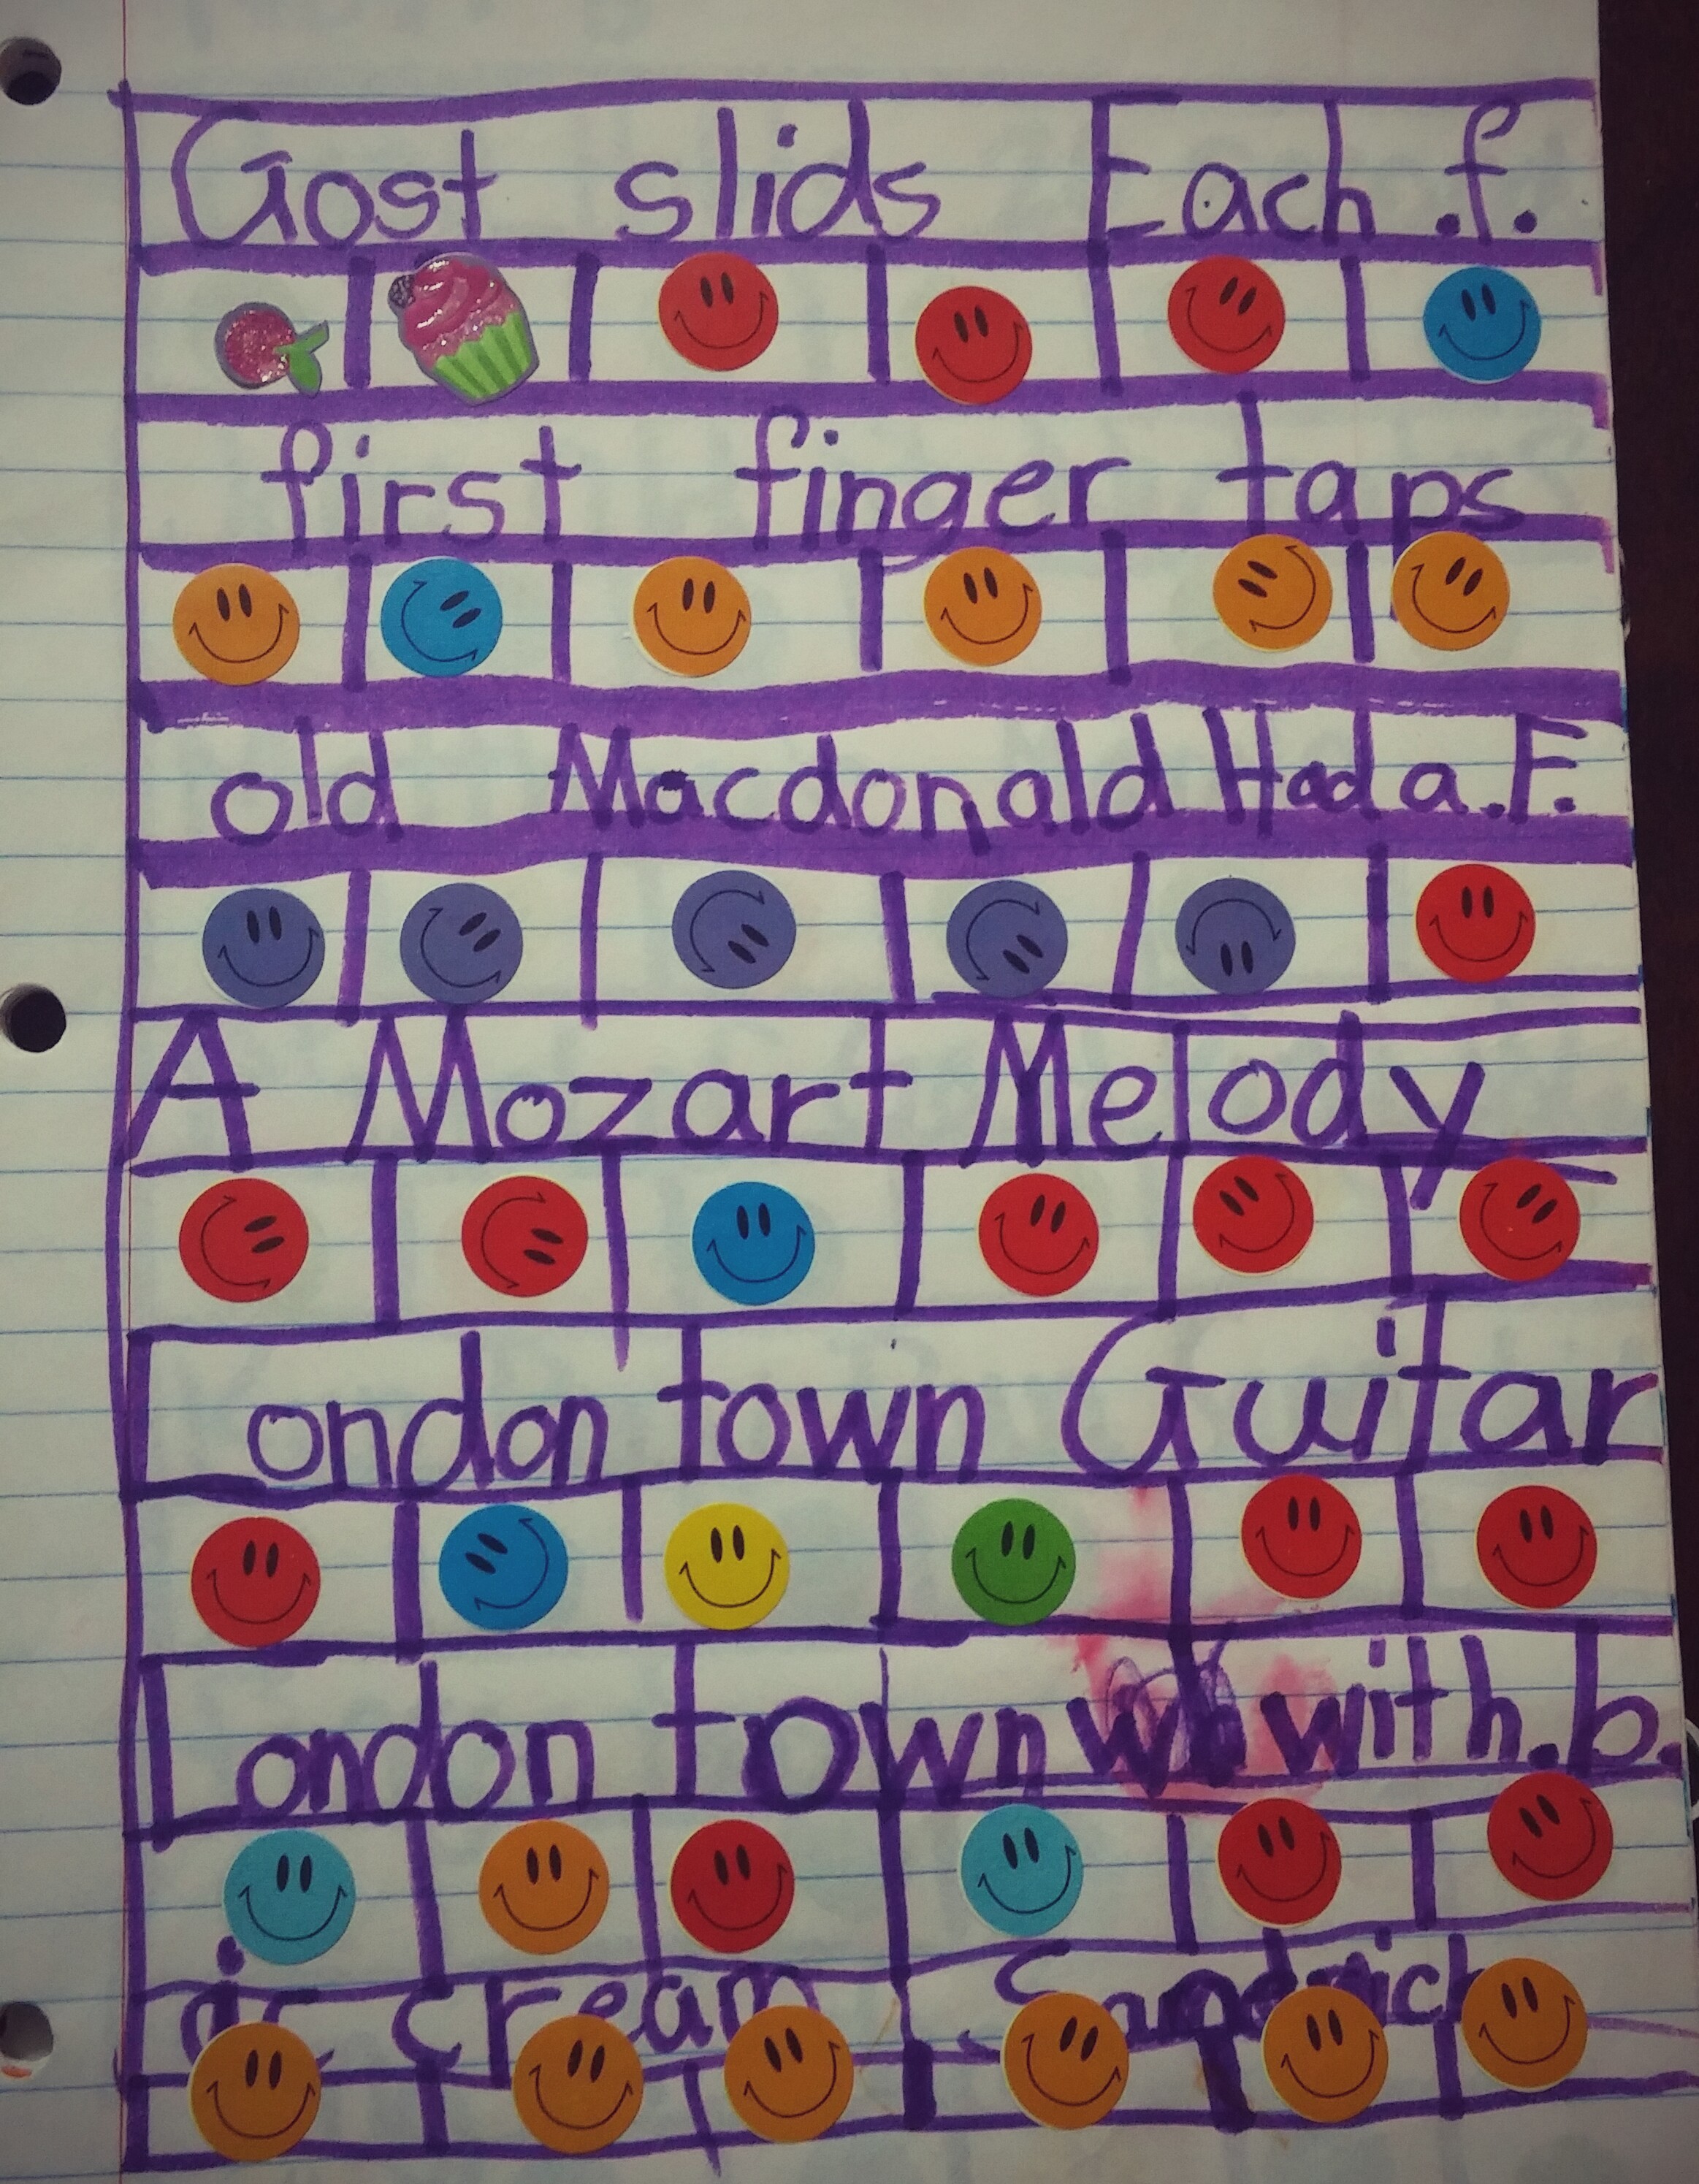 Gost slids Each .f.
first finger taps
old Macdonald Had a .F.
A Mozart Melody
London town Guitar
London town with .b.
ic cream Sandwich